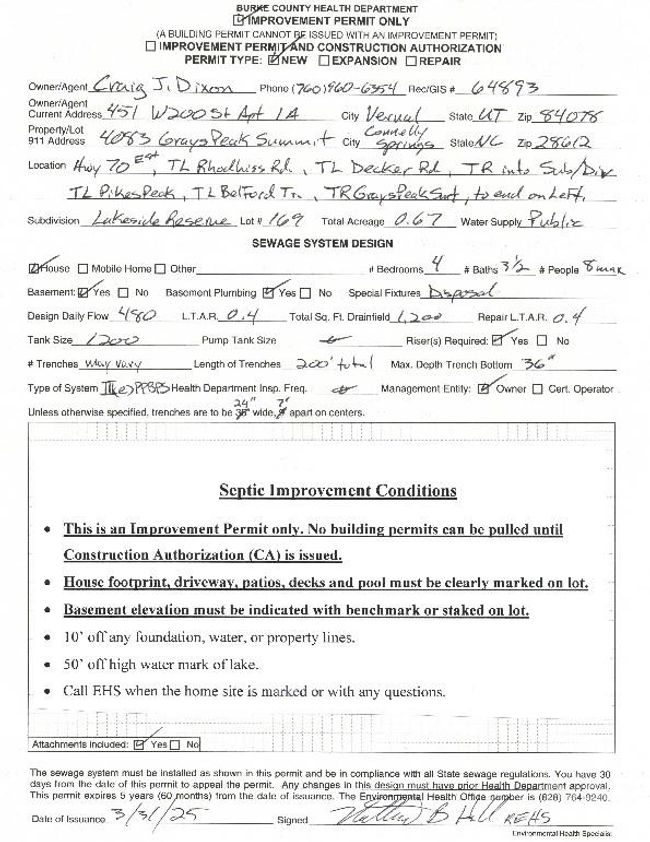 BURKE COUNTY HEALTH DEPARTMENT
☑ IMPROVEMENT PERMIT ONLY
(A BUILDING PERMIT CANNOT BE ISSUED WITH AN IMPROVEMENT PERMIT)
☐ IMPROVEMENT PERMIT AND CONSTRUCTION AUTHORIZATION
PERMIT TYPE: ☑ NEW ☐ EXPANSION ☐ REPAIR
Owner/Agent Craig J. Dixon Phone (760)960-6354 Rec/GIS # 64893
Owner/Agent
Current Address 451 W200 St Apt 1A City Vernal State UT Zip 84078
Property/Lot
911 Address 4083 Grays Peak Summit City Connelly Springs State NC Zip 28612
Location Hwy 70 East, TL Rhodhiss Rd, TL Decker Rd, TR into Sub/Div
TL Pikes Peak, TL Belford Tr., TR Grays Peak, to end on Left.
Subdivision Lakeside Reserve Lot # 169 Total Acreage 0.67 Water Supply Public
SEWAGE SYSTEM DESIGN
☑ House ☐ Mobile Home ☐ Other # Bedrooms 4 # Baths 3 1/2 # People 8 max
Basement: ☑ Yes ☐ No Basement Plumbing ☑ Yes ☐ No Special Fixtures Disposal
Design Daily Flow 480 L.T.A.R. 0.4 Total Sq. Ft. Drainfield 1,200 Repair L.T.A.R. 0.4
Tank Size 1200 Pump Tank Size Riser(s) Required: ☑ Yes ☐ No
# Trenches May vary Length of Trenches 200' total Max. Depth Trench Bottom 36"
Type of System PPBPS Health Department Insp. Freq. Management Entity: ☑ Owner ☐ Cert. Operator
24" 7'
Unless otherwise specified, trenches are to be wide, apart on centers.
Septic Improvement Conditions
• This is an Improvement Permit only. No building permits can be pulled until
Construction Authorization (CA) is issued.
• House footprint, driveway, patios, decks and pool must be clearly marked on lot.
• Basement elevation must be indicated with benchmark or staked on lot.
• 10' off any foundation, water, or property lines.
• 50' off high water mark of lake.
• Call EHS when the home site is marked or with any questions.
Attachments included: ☑ Yes ☐ No
The sewage system must be installed as shown in this permit and be in compliance with all State sewage regulations. You have 30
days from the date of this permit to appeal the permit. Any changes in this design must have prior Health Department approval.
This permit expires 5 years (60 months) from the date of issuance. The Environmental Health Office number is (828) 764-9240.
Date of Issuance 3/31/25 Signed REHS
Environmental Health Specialist